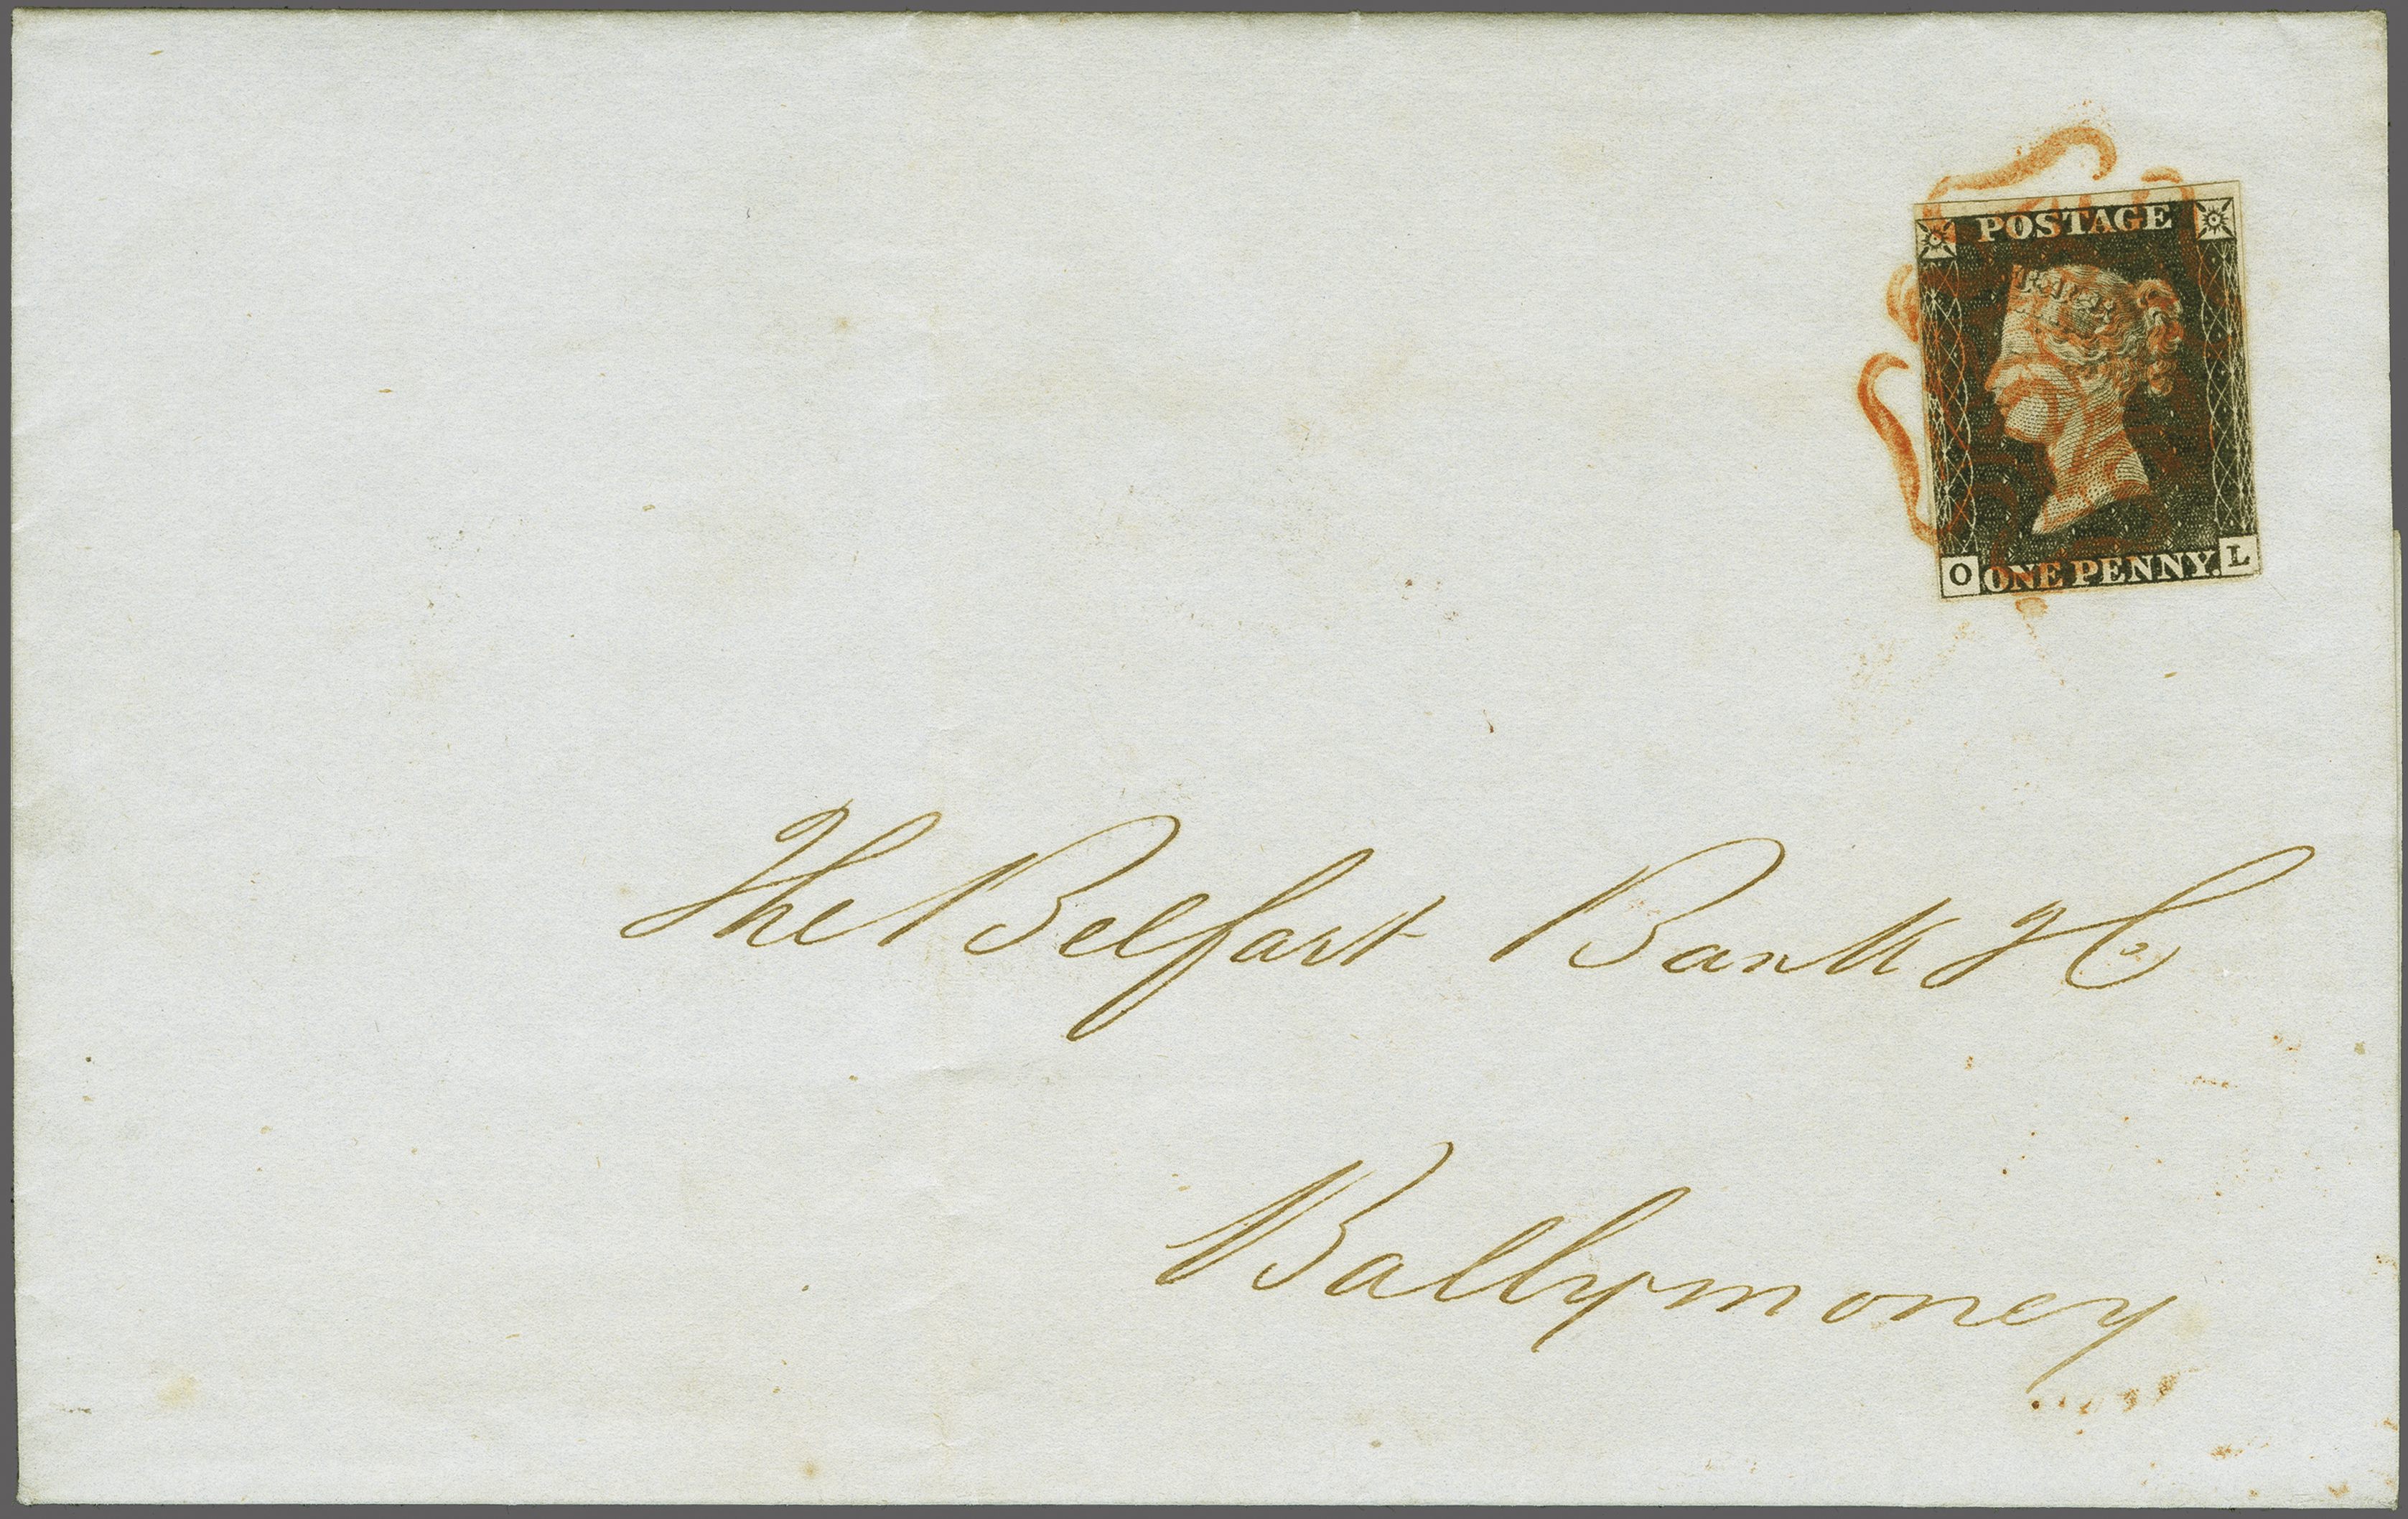 POSTAGE
O ONE PENNY. L
The Belfast Bank & Co
Ballymoney